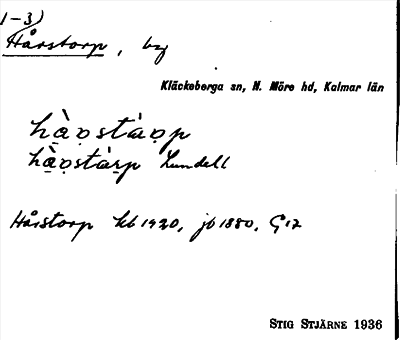 1-3)
Hårstorp, by
Kläckeberga sn, N. Möre hd, Kalmar län
Lundell
Hårstorp kb 1920, jb 1880, G 12
STIG STJÄRNE 1936